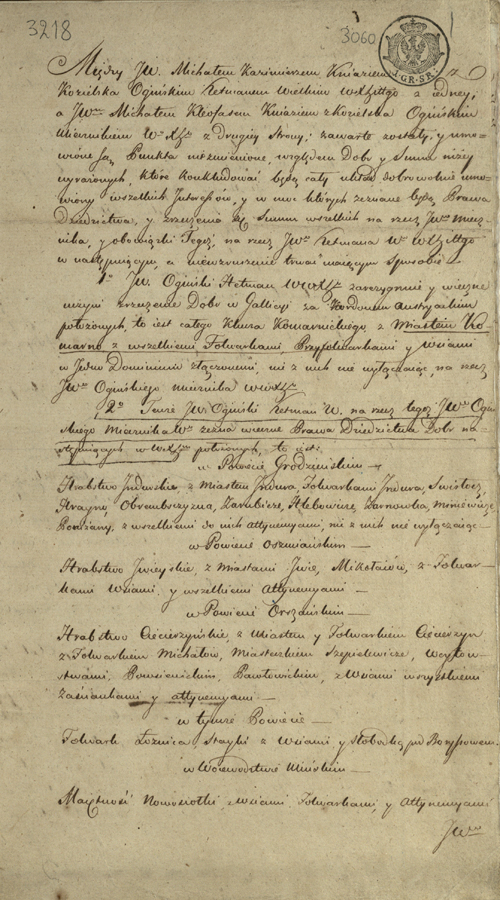 3218
3060
1 GR. SR.
Między JW. Michałem Kazimierzem Kniaziem z
Kozielska Ogińskim Hetmanem Wielkim WXLittgo z iedney,
a JWm Michałem Kleofasem Kniaziem z Kozielska Ogińskim
Miecznikiem Wo XLgo z drugiey Strony; zawarte zostały, y umo-
wione są Punkta niżmienione, względem Dobr y Summ niżey
wyrażonych, które konkludować będą cały układ dobrowolnie umo-
wiony wszelkich Interesów, y w moc których zeznane będą Prawa
Dziedzictwa, y zrzeczenia się Summ wszelkich na rzecz JWo Miecz-
nika, y obowiązki Tegoż, na rzecz JWo Hetmana Wo WXLittgo
w następuiącym, a niewzruszenie trwać maiącym Sposobie —
1o JW. Ogiński Hetman WWXL zarezygnuie y wieczne
uczyni zrzeczenie Dobr w Gallicyi za Kordonem Austryackim
położonych, to iest całego Klucza Komarnickiego, z Miastem Ko-
marno z wszelkiemi Folwarkami, Przyfolwarkami y Wsiami
w Jedno Dominium złączonemi, nic z nich nie wyłączaiąc, na rzecz
JWo Ogińskiego Miecznika WWXL
2o Tenże JW. Ogiński Hetman W. na rzecz tegoż JWo Ogiń-
skiego Miecznika Wo zezna wieczne Prawa Dziedzictwa Dobr na-
stępuiących, w WXL położonych, to iest:
w Powiecie Grodzieńskim —
Hrabstwo Indurskie, z Miastem Indura, Folwarkami Indura, Swisłocz,
Krayno, Obrembszczyzna, Zarubicze, Hlebowicze, Żarnowka,
z wszelkiemi do nich attynencyami, nic z nich nie wyłączaiąc —
w Powiecie Oszmiańskim —
Hrabstwo Jwieyskie, z Miastami Jwie, Mikołaiów, z Folwar-
kami Wsiami, y wszelkiemi Attynencyami —
w Powiecie Orszańskim —
Hrabstwo Ciecierzyńskie, z Miastem y Folwarkiem Ciecierzyn
z Folwarkiem Michałów, Miasteczkiem Szepielewicze, Woytow-
stwami, Pawłowickim, z Wsiami wszystkiemi
Zaściankami y attynencyami —
w tymże Powiecie —
Folwark Łoźnica Stayki z Wsiami y Słobodką pod Boryssowem.
w Woiewodztwie Mińskim —
Maiętność Nowosiołki, z Wsiami, Folwarkami, y Attynencyami
JWm